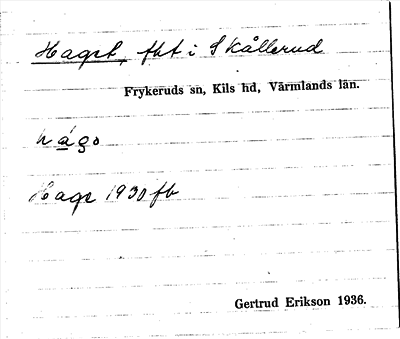 Haget, fht i Skållerud
Frykeruds sn, Kils hd, Värmlands län.
hágo
Hage 1930 fb
Gertrud Erikson 1936.